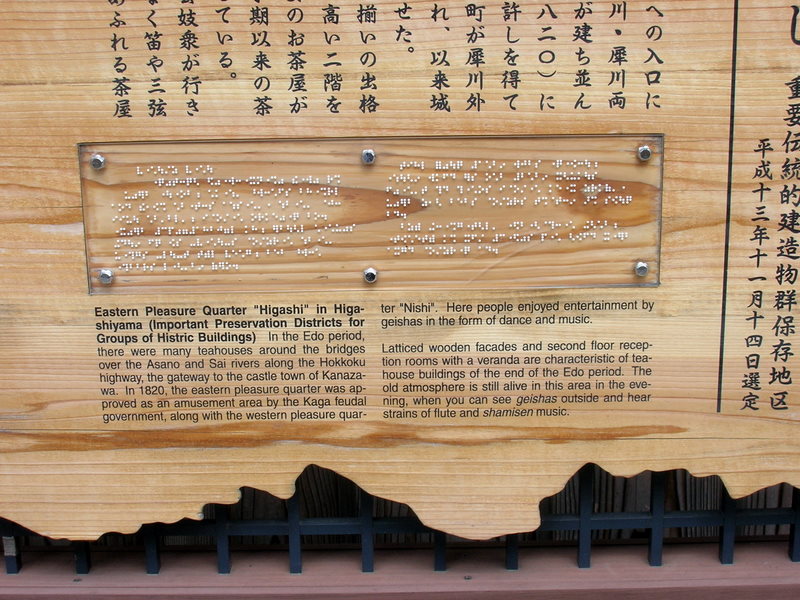 重要伝統的建造物群保存地区
平成十三年十一月十四日選定
への入口に
川・犀川両
が建ち並ん
八二〇）に
許しを得て
町が犀川外
れ、以来城
せた。
揃いの出格
高い二階を
のお茶屋が
期以来の茶
ている。
妓衆が行き
く笛や三弦
ふれる茶屋
Eastern Pleasure Quarter "Higashi" in Higa-
shiyama (Important Preservation Districts for
Groups of Histric Buildings) In the Edo period,
there were many teahouses around the bridges
over the Asano and Sai rivers along the Hokkoku
highway, the gateway to the castle town of Kanaza-
wa. In 1820, the eastern pleasure quarter was ap-
proved as an amusement area by the Kaga feudal
government, along with the western pleasure quar-
ter "Nishi". Here people enjoyed entertainment by
geishas in the form of dance and music.
Latticed wooden facades and second floor recep-
tion rooms with a veranda are characteristic of tea-
house buildings of the end of the Edo period. The
old atmosphere is still alive in this area in the eve-
ning, when you can see geishas outside and hear
strains of flute and shamisen music.